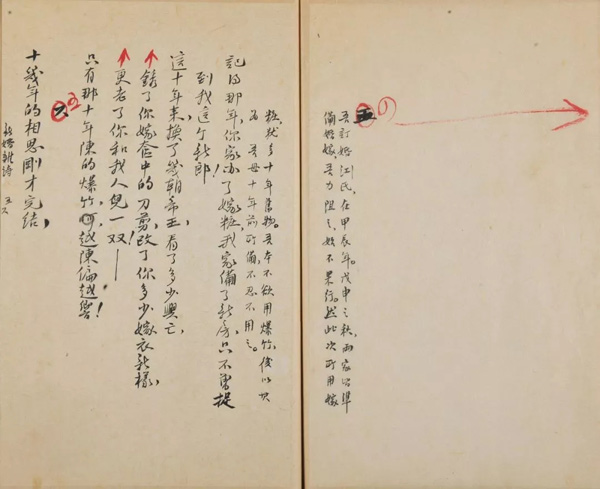 五
吾訂婚江氏，在甲辰年。戊申之秋，兩家皆準
備婚嫁，吾力阻之，始不果行。然此次所用嫁
粧，犹多十年舊物。吾本不欲用爆竹，後以其
為吾母十年前所備，不忍不用之。
記得那年，你家办了嫁粧，我家備了新房，只不曾捉
到我這个新郎！
這十年來，換了幾朝帝王，看了多少興亡，
銹了你嫁奩中的刀剪，改了你多少嫁衣新樣，
更老了你和我人兒一双！——
只有那十年陳的爆竹呵，越陳偏越響！
六
十幾年的相思剛才完結，
新婚雜詩 五六